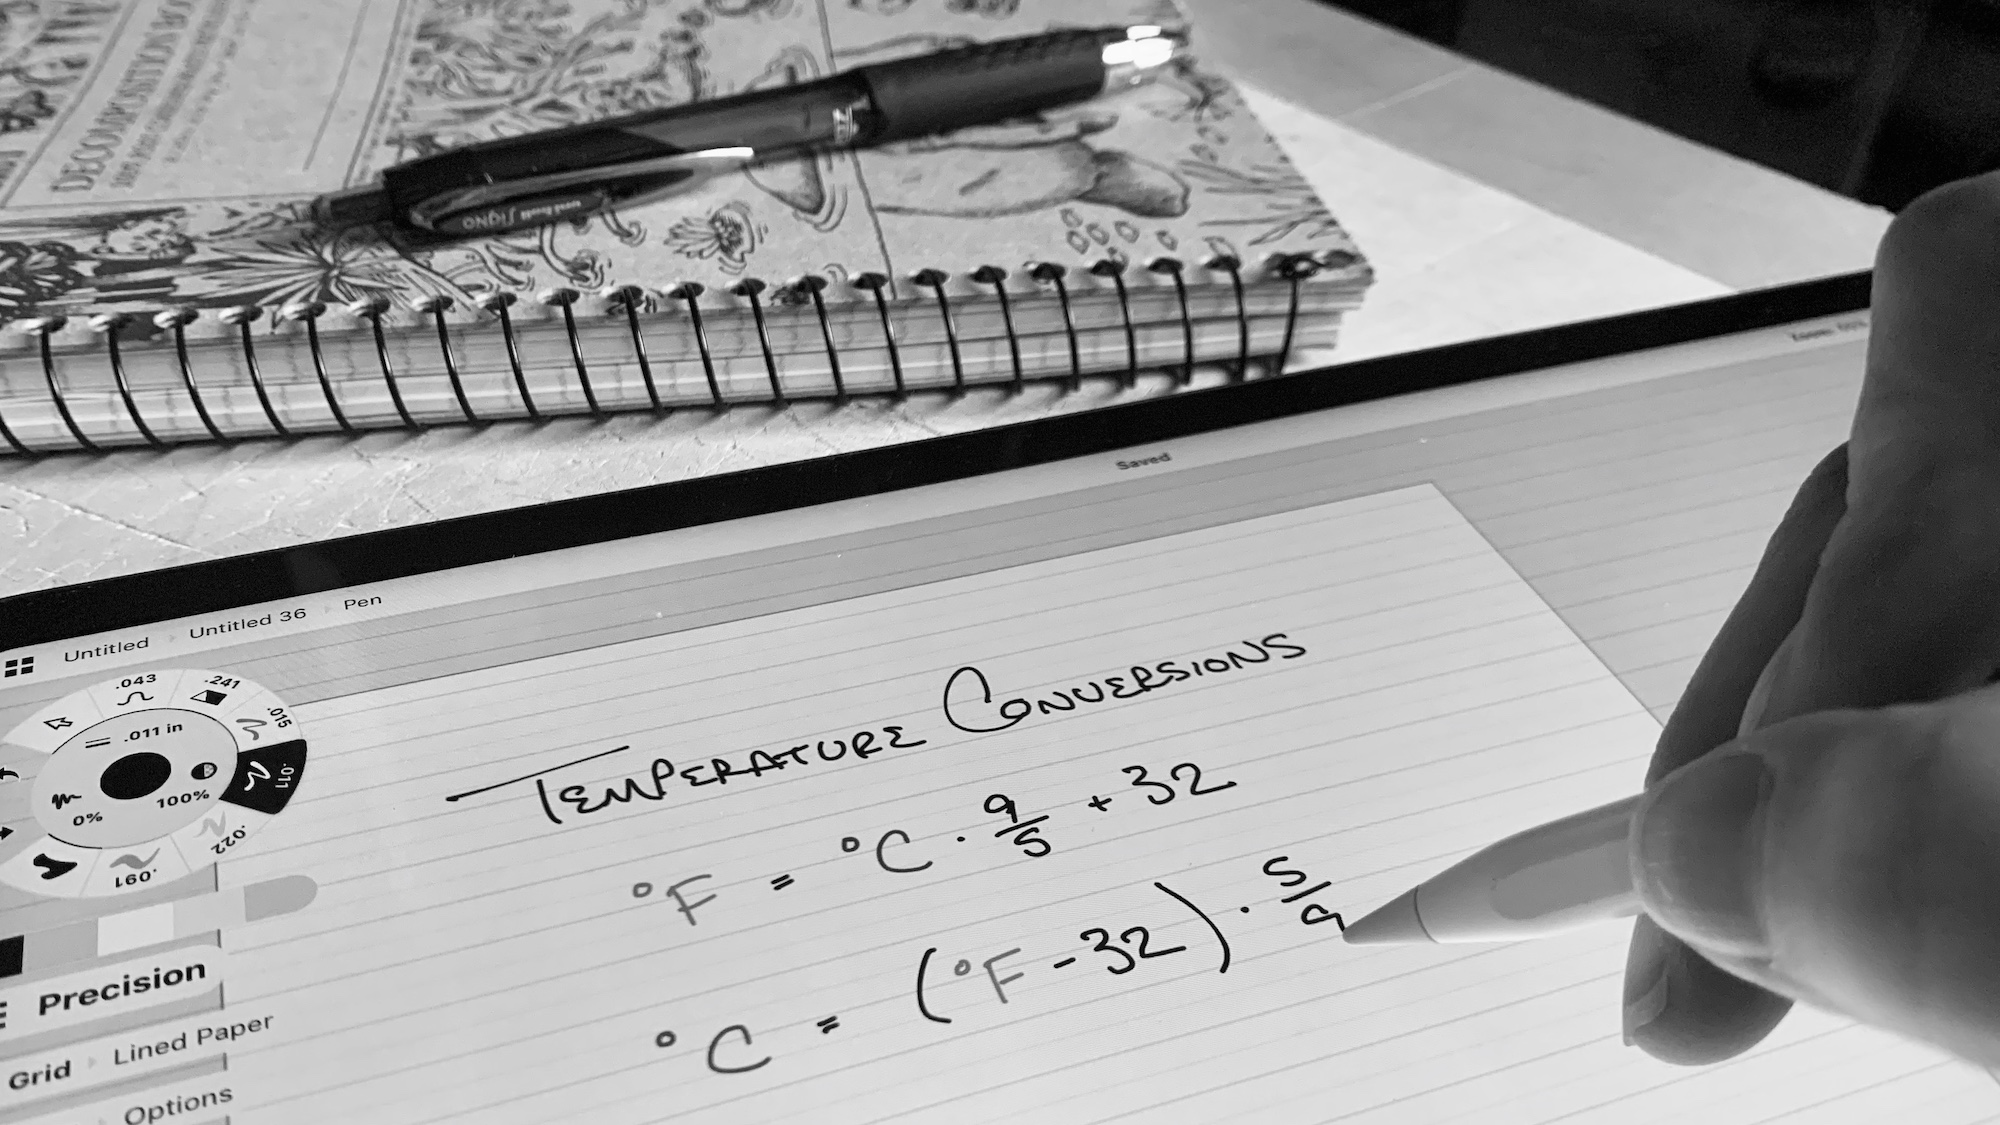 DECOMPOSITION
uni-ball SIGNO
Saved
Untitled Untitled 36 Pen
.043
.241
.015
.011 in
.011
0%
100%
.022
.091
Precision
Grid Lined Paper
Options
TEMPERATURE CONVERSIONS
°F = °C · 9/5 + 32
°C = (°F - 32) · 5/9